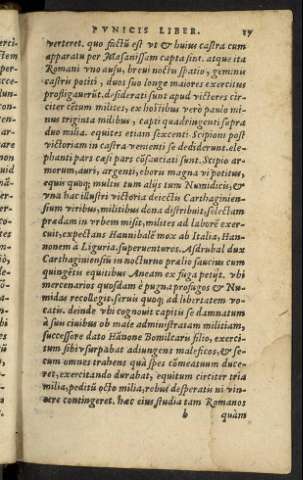 PVNICIS LIBER. 17
verteret. quo factũ est vt & huius castra cum
apparatu per Masanissam capta sint. atque ita
Romani vno ausu, breui noctu spatio, geminis
castris potiti, duos suo longe maiores exercitus
profligauerũt. desiderati sunt apud victores cir=
citer cẽtum milites, ex hostibus verò paulo mi=
nus triginta milibus, capti quadringenti supra
duo milia. equites etiam sexcenti Scipioni post
victoriam in castra venienti se dediderunt. ele=
phanti pars cæsi pars cõsauciati sunt. Scipio ar=
morum, auri, argenti, eboru magna vi potitus,
equis quoq; multis tum alijs tum Numidicis, &
vna hac illustri victoria deiectis Carthaginien=
sium viribus, militibus dona distribuit. selectam
prædam in vrbem misit, milites ad laborẽ exer=
cuit, expectans Hannibalẽ mox ab Italia, Han=
nonem à Liguria superuenturos. Asdrubal dux
Carthaginiensiũ in nocturno prælio saucius cum
quingẽtis equitibus Aneam ex fuga petijt. vbi
mercenarios quosdam è pugna profugos & Nu=
midas recollegit. seruis quoq; ad libertatem vo=
catis. deinde vbi cognouit capitis se damnatum
à suis ciuibus ob male administratam militiam,
successore dato Hãnone Bomilcaris filio, exerci=
tum sibi vsurpabat adiungens maleficos, & se=
cum omnes trahens quâ spes cõmeatuum duce=
ret, exercitando durabat, equitum circiter tria
milia, peditũ octo milia, robus desperatis ni vin=
cere contingeret. hæc eius studia tam Romanos
b quàm